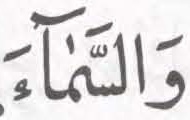 وَالسَّمَآءَ